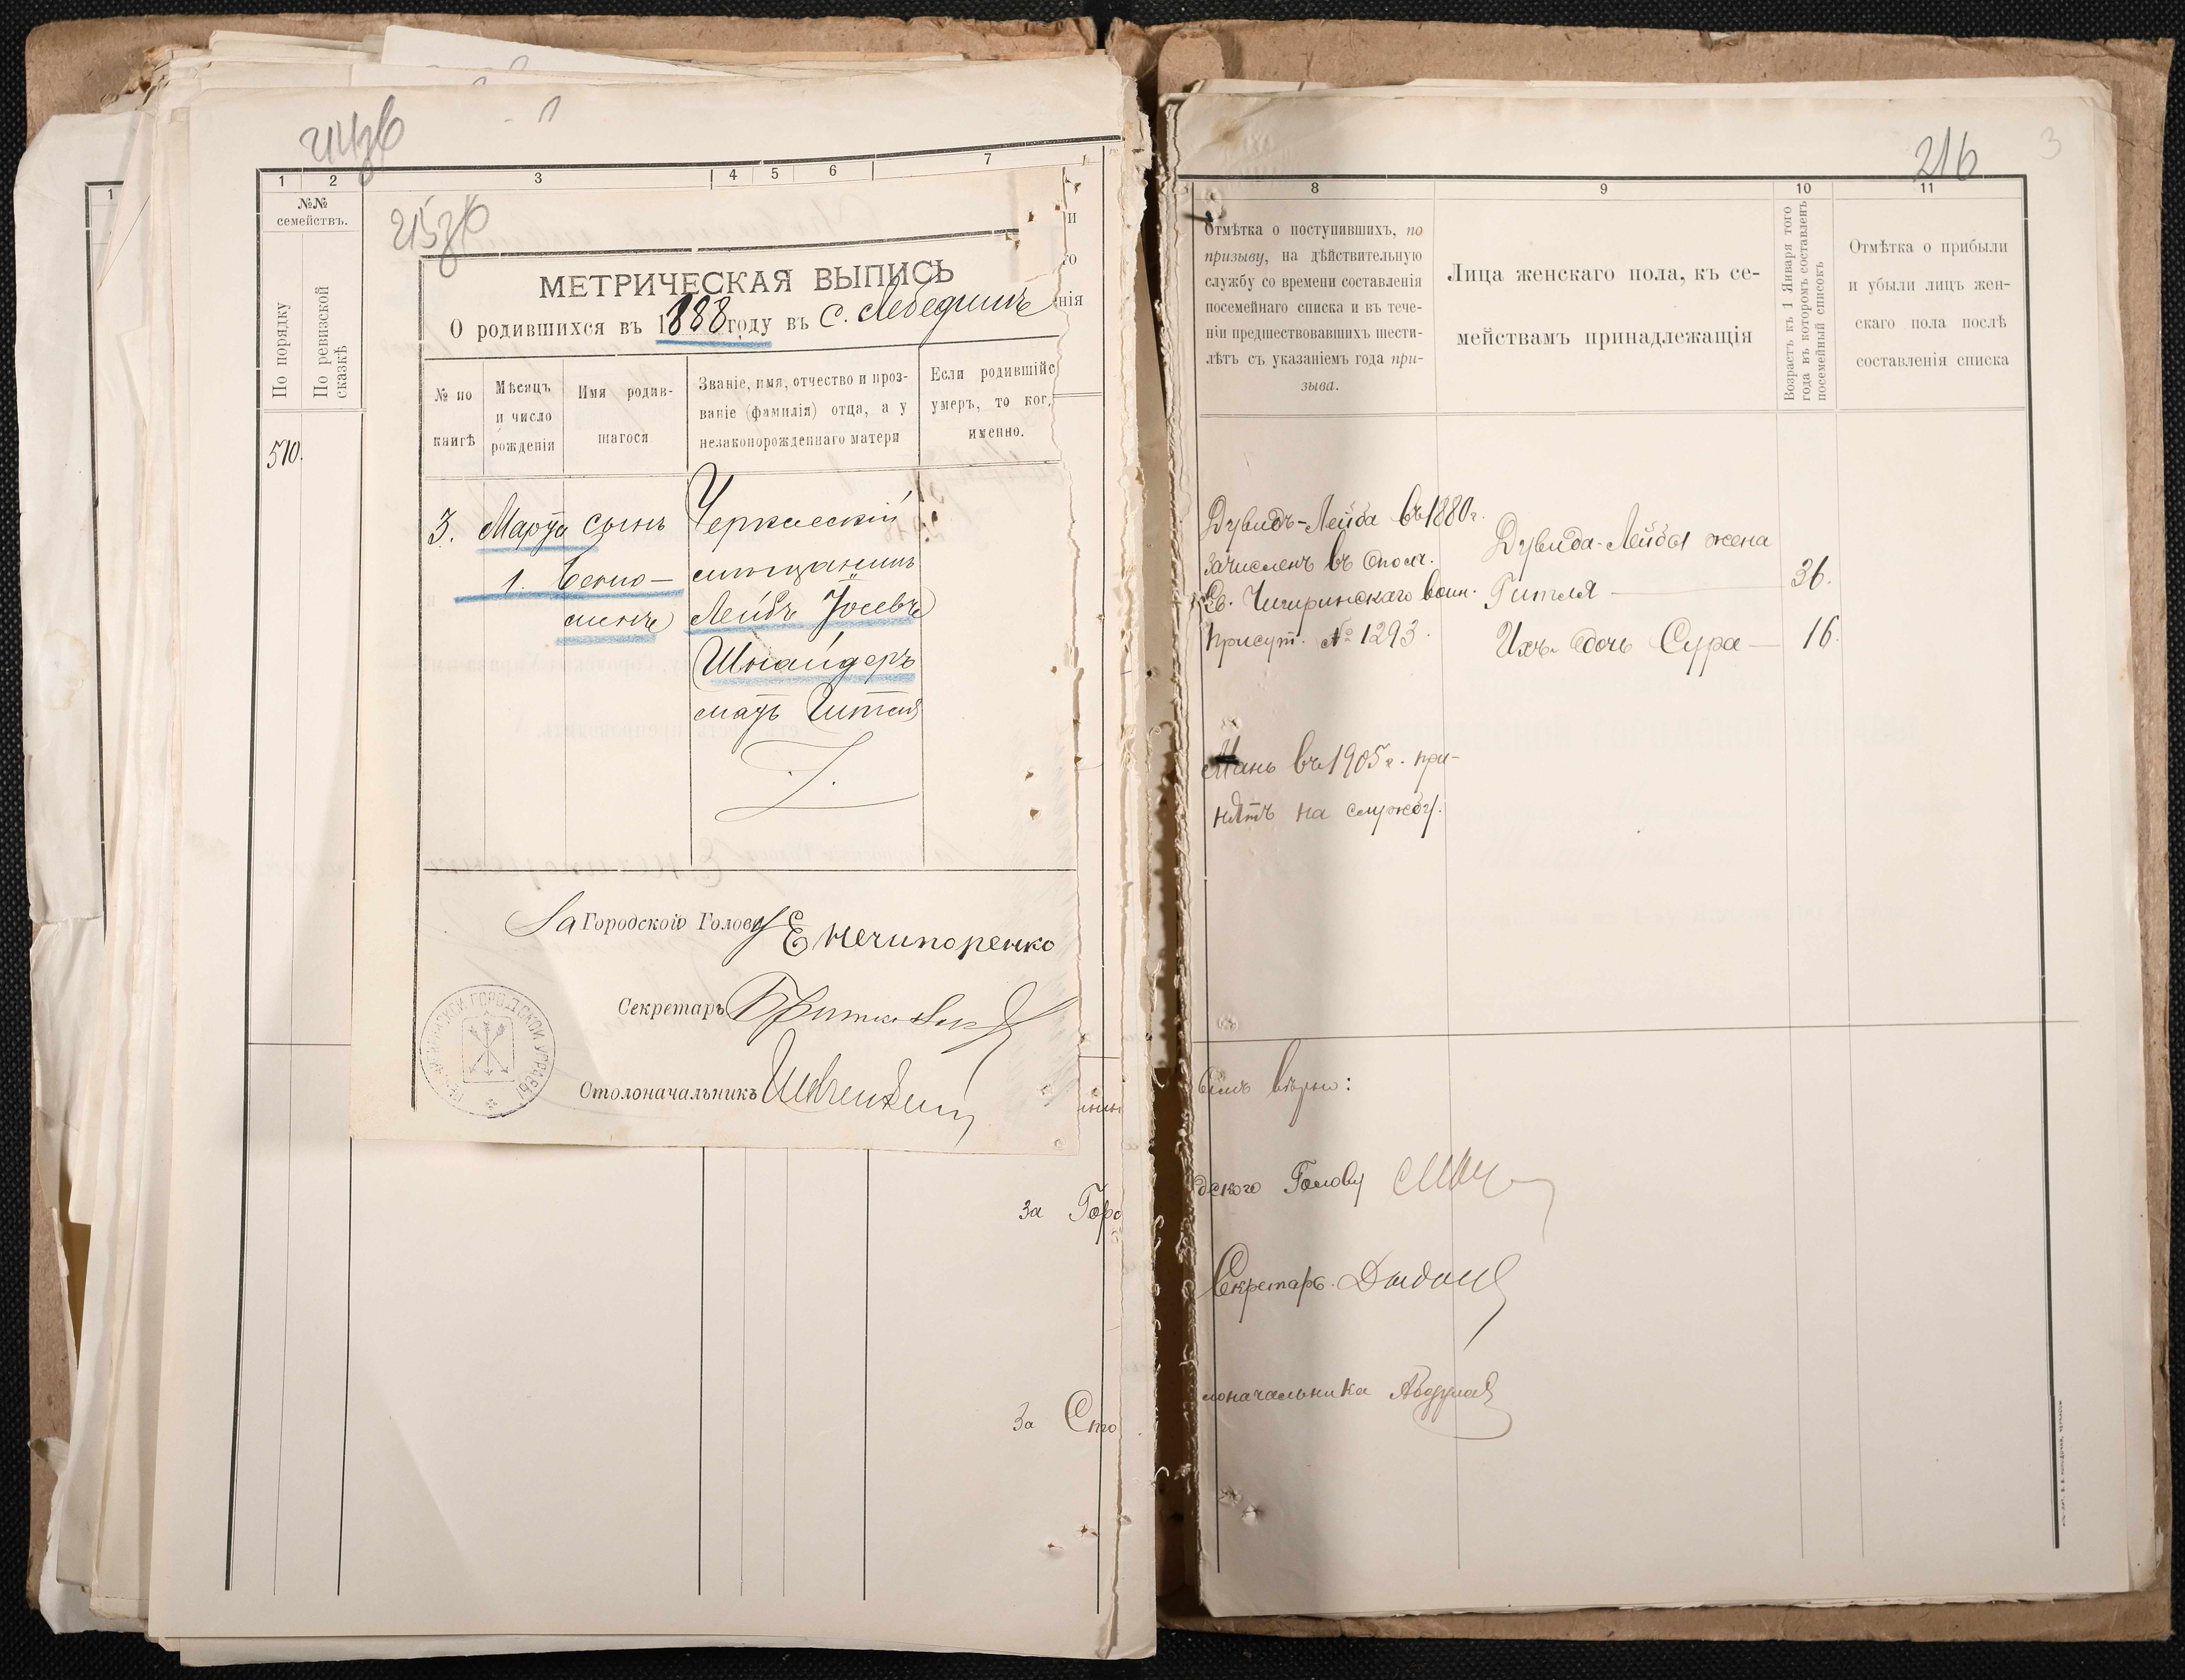 214зв
1 2 3 4 5 6 7
№№
семействъ.
По порядку
По ревизской
сказкѣ
510.
215зв
МЕТРИЧЕСКАЯ ВЫПИСЬ
О родившихся въ 1888 году въ с. Лебединѣ
№ по
книгѣ
Мѣсяцъ
и число
рожденія
Имя родив-
шагося
Званіе, имя, отчество и проз-
ваніе (фамилія) отца, а у
незаконорожденнаго матери
Если родившійс
умеръ, то ког
именно.
3. Марта сынъ Черкасскій
1. Бенію- мѣщанинъ
минъ Лейбъ Іосевъ
Шнайдеръ
мать Гитля
За Городской Голова Е Нечипоренко
Секретарь
Столоначальникъ
за Горо
За Сто
216
3
8 9 10 11
Отмѣтка о поступившихъ, по
призыву, на дѣйствительную
службу со времени составленія
посемейнаго списка и въ тече-
ніи предшествовавшихъ шести-
лѣтъ съ указаніемъ года при-
зыва.
Лица женскаго пола, къ се-
мействамъ принадлежащія
Возрастъ къ 1 Января того
года въ которомъ составленъ
посемейный списокъ
Отмѣтка о прибыли
и убыли лицъ жен-
скаго пола послѣ
составленія списка
Дувидъ-Лейба въ 1880г.
зачисленъ въ ополч.
Св. Чигиринскаго воин.
присут. № 1293.
Дувида-Лейбы жена
Гитля 36.
Ихъ дочь Сура 16.
въ 1905 г. при-
нятъ на службу.
вѣрно:
дского Голову
Секретарь
лоначальника